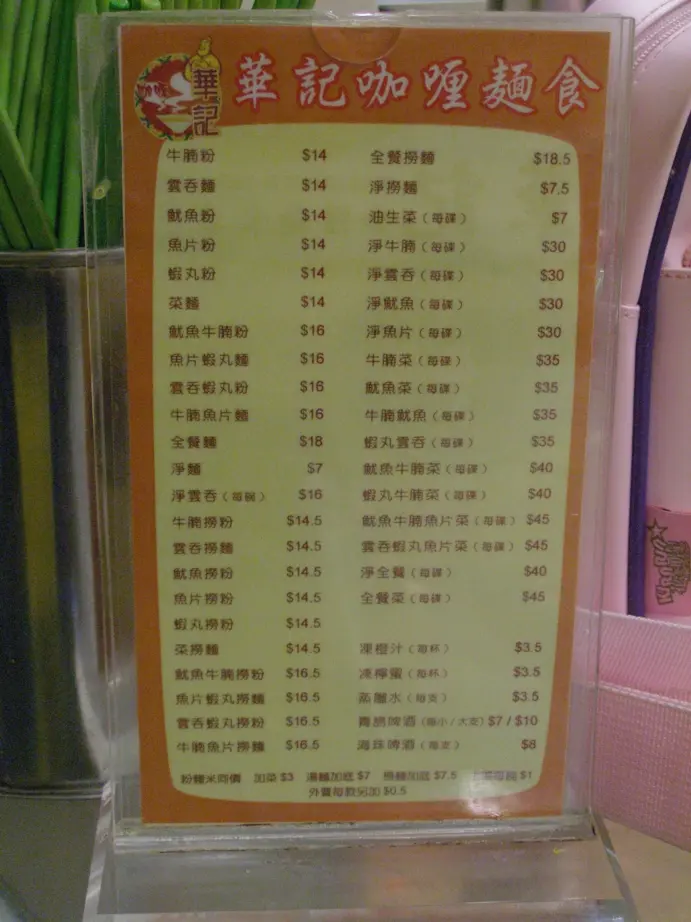 華記
華記咖喱麵食
牛腩粉 $14
雲吞麵 $14
魷魚粉 $14
魚片粉 $14
蝦丸粉 $14
菜麵 $14
魷魚牛腩粉 $16
魚片蝦丸麵 $16
雲吞蝦丸粉 $16
牛腩魚片麵 $16
全餐麵 $18
淨麵 $7
淨雲吞（每碗） $16
牛腩撈粉 $14.5
雲吞撈麵 $14.5
魷魚撈粉 $14.5
魚片撈粉 $14.5
蝦丸撈粉 $14.5
菜撈麵 $14.5
魷魚牛腩撈粉 $16.5
魚片蝦丸撈麵 $16.5
雲吞蝦丸撈粉 $16.5
牛腩魚片撈麵 $16.5
全餐撈麵 $18.5
淨撈麵 $7.5
油生菜（每碟） $7
淨牛腩（每碟） $30
淨雲吞（每碟） $30
淨魷魚（每碟） $30
淨魚片（每碟） $30
牛腩菜（每碟） $35
魷魚菜（每碟） $35
牛腩魷魚（每碟） $35
蝦丸雲吞（每碟） $35
魷魚牛腩菜（每碟） $40
蝦丸牛腩菜（每碟） $40
魷魚牛腩魚片菜（每碟） $45
雲吞蝦丸魚片菜（每碟） $45
淨全餐（每碟） $40
全餐菜（每碟） $45
凍橙汁（每杯） $3.5
凍檸蜜（每杯） $3.5
蒸餾水（每支） $3.5
青島啤酒（細小/大支） $7 / $10
海珠啤酒（每支） $8
粉麵米同價 加菜 $3 湯麵加底 $7 撈麵加底 $7.5 $1
外賣每款另加 $0.5